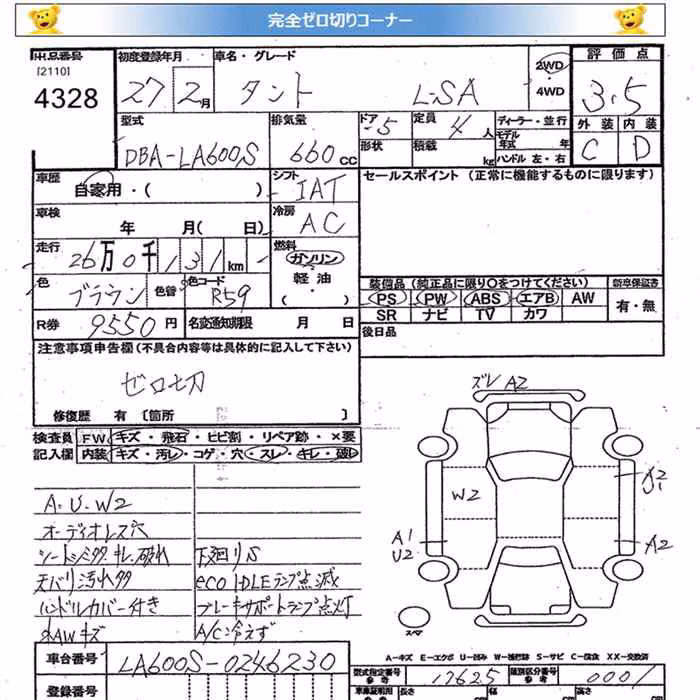 完全ゼロ切りコーナー
出品番号 初度登録年月 車名・グレード 2WD 評価点
[2110]
4328 27 2月 タント L・SA 4WD 3.5
型式 排気量 ドア 5 定員 4人 ディーラー・並行 外装 内装
DBA-LA600S 660cc 形状 積載 kg モデル年式 年 ハンドル 左・右 C D
車歴 自家用・( ) シフト IAT セールスポイント (正常に機能するものに限ります)
車検 年 月(日) 冷房 AC
走行 26万0千131km 燃料 ガソリン・軽油・( )
色 ブラウン 色替 色コード R59 装備品 (純正品に限り○をつけてください) 新車保証書
PS PW ABS エアB AW 有・無
R券 9550円 名変通知期限 月 日 SR ナビ TV カワ
注意事項申告欄 (不具合内容等は具体的に記入して下さい) 後日品
ゼロ切
修復歴 有 [箇所 ]
ズレ A2
検査員 FW キズ・飛石・ヒビ割・リペア跡・×要
記入欄 内装 キズ・汚レ・コゲ・穴・スレ・キレ・破レ
A・U・W2
オーディオレス穴
シートシミ タバコ キレ、破れ 下廻りS
天バリ汚れ多 eco IDLEランプ点滅
ハンドルカバー付き ブレーキサポートランプ点灯
AWキズ A/C冷えず
W2
A2
U1
A1
U2
A2
スペア
A-キズ E-エクボ U-凹み W-補修跡 S-サビ C-腐食 XX-交換済
車台番号 LA600S-0246230
型式指定番号 参考 17625 類別区分番号 参考 0001
登録番号 長さ 幅 高さ